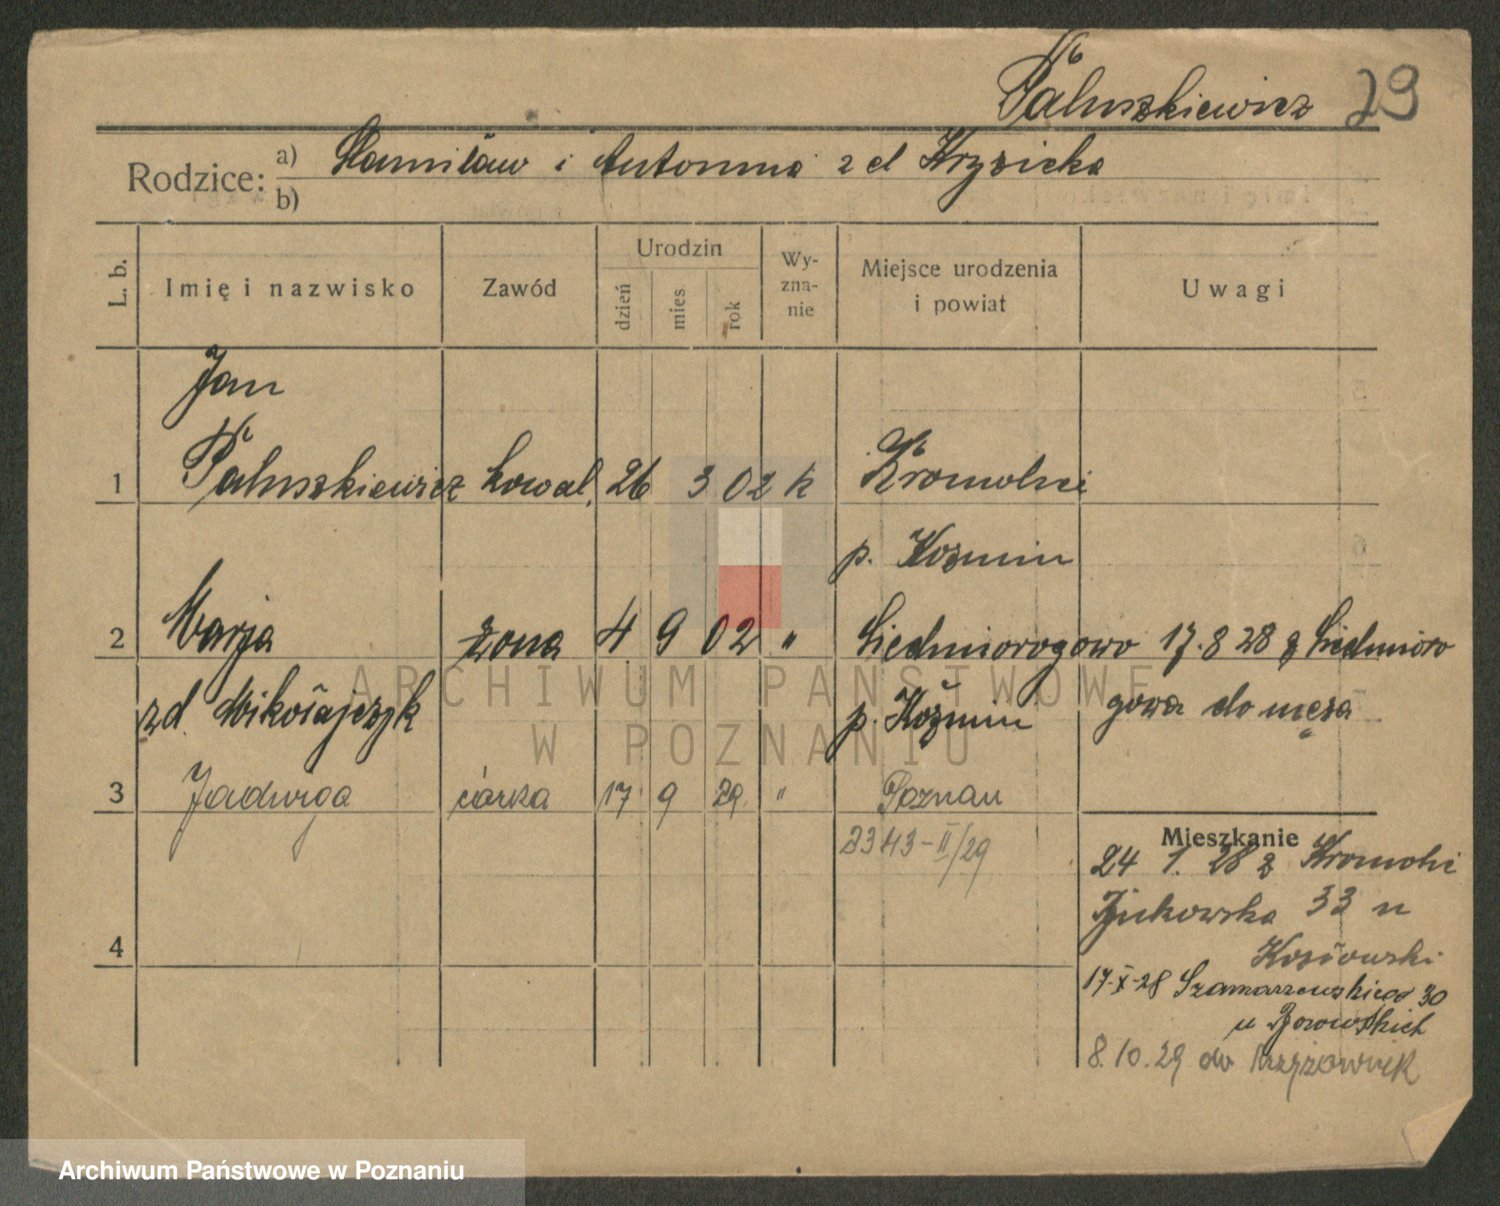 Paluszkiewicz 29
Rodzice: a) Stanisław i Antonina z d Krysicka
b)
L. b. Imię i nazwisko Zawód Urodzin dzień mies rok Wy-zna-nie Miejsce urodzenia i powiat Uwagi
Jan
1 Paluszkiewicz kowal. 26 3 02 k Kromolice
p. Kozmin
2 Marja żona 4 9 02 " Siedmiorogowo 17.8 28 z Siedmioro
zd. Mikołajczyk p. Kozmin gowa do męża
3 Jadwiga córka 17 9 29 " Poznan
2343-II/29
Mieszkanie
24 1. 28 z Kromolic
Żukowska 33 u
4 Kosłowski
17-X-28 Szamarzewskiego 30
u Borowskich
8.10.29 do Krzyżownik
ARCHIWUM PAŃSTWOWE
W POZNANIU
Archiwum Państwowe w Poznaniu